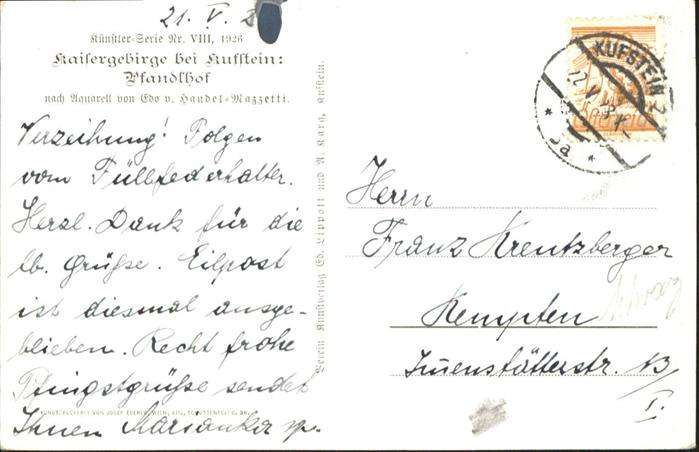 21. V.
Künstler-Serie Nr. VIII, 1926
Kaisergebirge bei Kufstein:
Pfandlhof
nach Aquarell von Edo v. Handel-Mazzetti.
Verzeihung! Folgen
vom Füllfederhalter.
Herzl. Dank für die
lb. Grüsse. Eilpost
ist diesmal ausge-
blieben. Recht frohe
Pfingstgrüsse sendet
Ihnen Marianka
Verein Kunstverlag Ed. Lippott und A. Karg, Kufstein.
KUFSTEIN 2
* 3a *
Herrn
Franz Kreutzberger
Kempten
Immenstätterstr. 13/I.